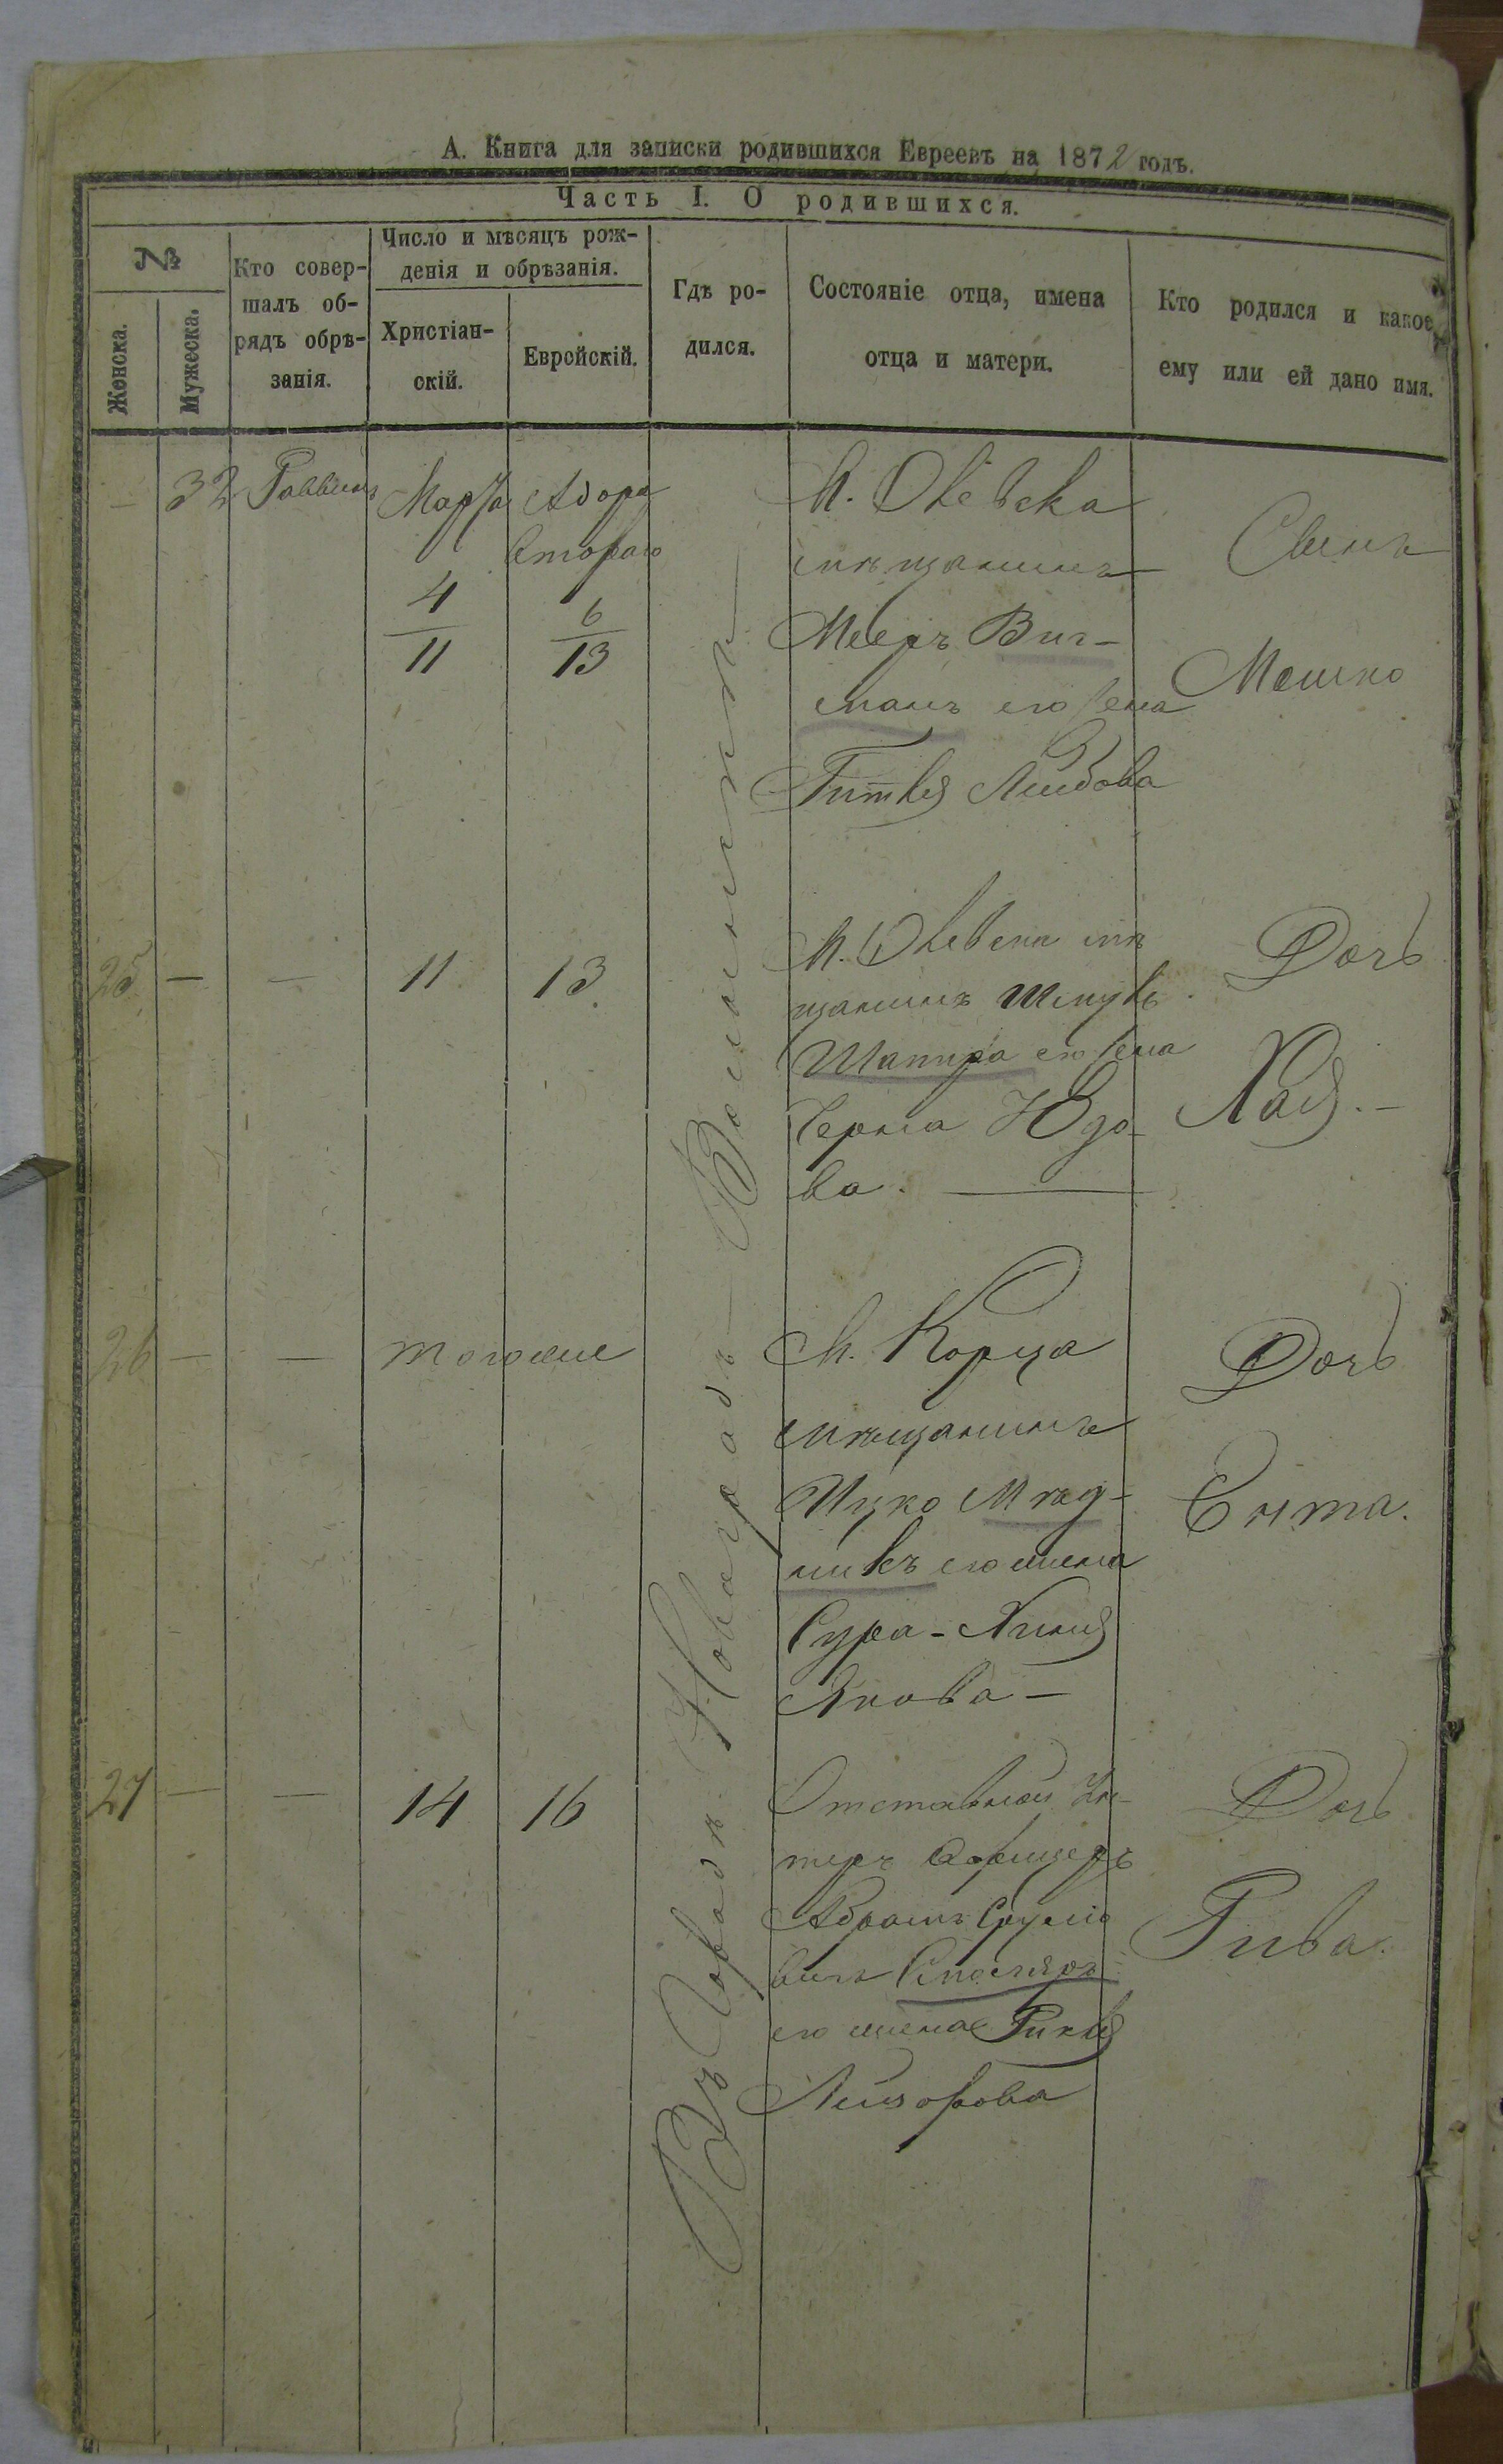 А. Книга для записки родившихся Евреевъ на 1872 годъ.
Часть I. О родившихся.
№
Женска.
Мужеска.
Кто совер-
шалъ об-
рядъ обрѣ-
занія.
Число и мѣсяцъ рож-
денія и обрѣзанія.
Христіан-
скій.
Еврейскій.
Гдѣ ро-
дился.
Состояніе отца, имена
отца и матери.
Кто родился и какое
ему или ей дано имя.
Въ Городѣ Новоградъ-Волынскѣ
— 32 Раввинъ
Марта
4
11
Адора
Второго
6
13
М. Олевска
мѣщанинъ
Мееръ Виг-
манъ его жена
Гитля Лейбова
Сынъ
Мошко
25 — — 11 13.
М. Олевска мѣ
щанинъ Шмуль
Шапира его жена
Черна Юдо-
ва. —
Дочь
Хая. —
26 — — того же
М. Корца
мѣщанинъ
Ицко Мѣд-
никъ его жена
Сура-Хиня
Якова —
Дочь
Ента.
27 — — 14 16
Отставной Ун-
теръ Офицеръ
Абрамъ Срулио
вичъ
его жена Рикля
Лейзорова
Дочь
Рива.